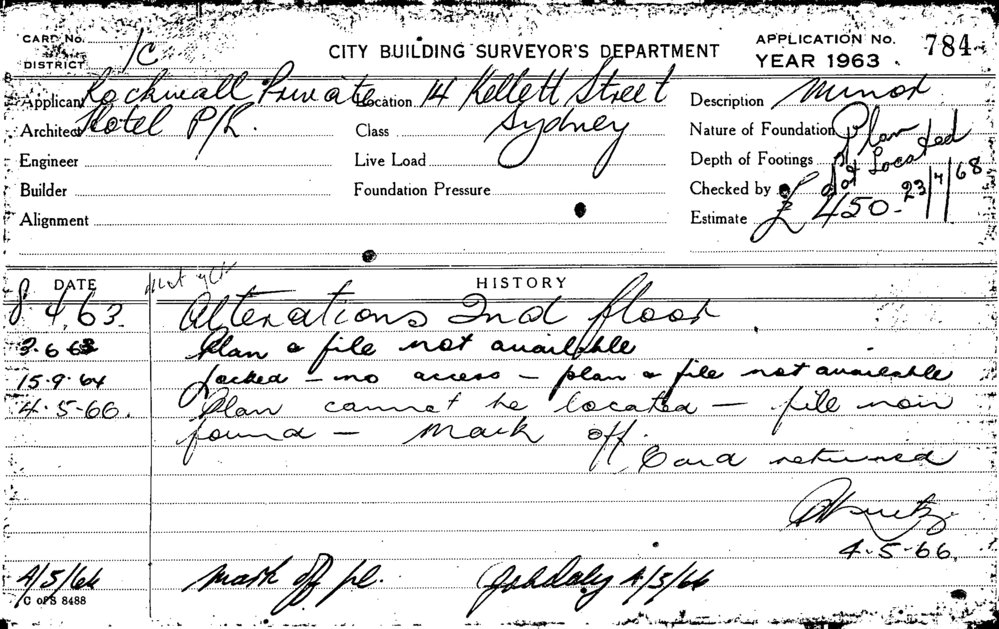 CARD No. 1C
DISTRICT
CITY BUILDING SURVEYOR'S DEPARTMENT
APPLICATION No. 784
YEAR 1963
Applicant Rockwall Private Location 14 Kellett Street Description Minor
Architect Hotel P/L. Class Sydney Nature of Foundation Plan
Engineer Live Load Depth of Footings not Located
Builder Foundation Pressure Checked by 23/7/68
Alignment Estimate £ 450-
DATE HISTORY
8.4.63. Alterations 2nd floor
3.6.63 Plan & file not available
15.9.64 Locked - no access - plan & file not available
4.5.66. Plan cannot be located - file now
found - Mark off.
Card returned
4.5.66.
4/5/66 mark off pl. 4/5/66
C of S 8488